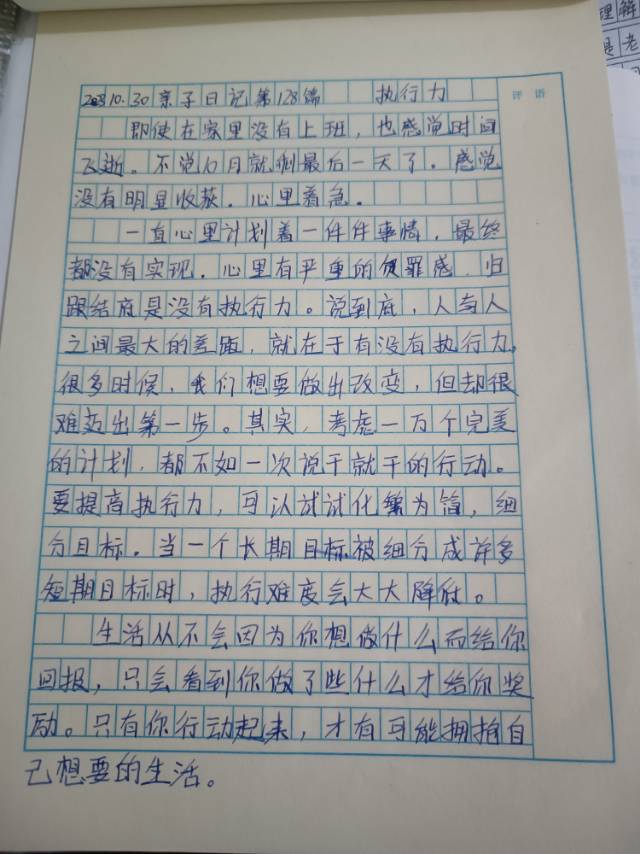 评语
2023.10.30亲子日记第128篇 执行力
即使在家里没有上班，也感觉时间
飞逝。不觉10月就剩最后一天了。感觉
没有明显收获，心里着急。
一直心里计划着一件件事情，最终
都没有实现，心里有严重的负罪感，归
跟结底是没有执行力。说到底，人与人
之间最大的差距，就在于有没有执行力，
很多时候，我们想要做出改变，但却很
难迈出第一步。其实，考虑一万个完美
的计划，都不如一次说干就干的行动。
要提高执行力，可认试试化繁为简，细
分目标。当一个长期目标被细分成许多
短期目标时，执行难度会大大降低。
生活从不会因为你想做什么而给你
回报，只会看到你做了些什么才给你奖
励。只有你行动起来，才有可能拥抱自
己想要的生活。
理解
老